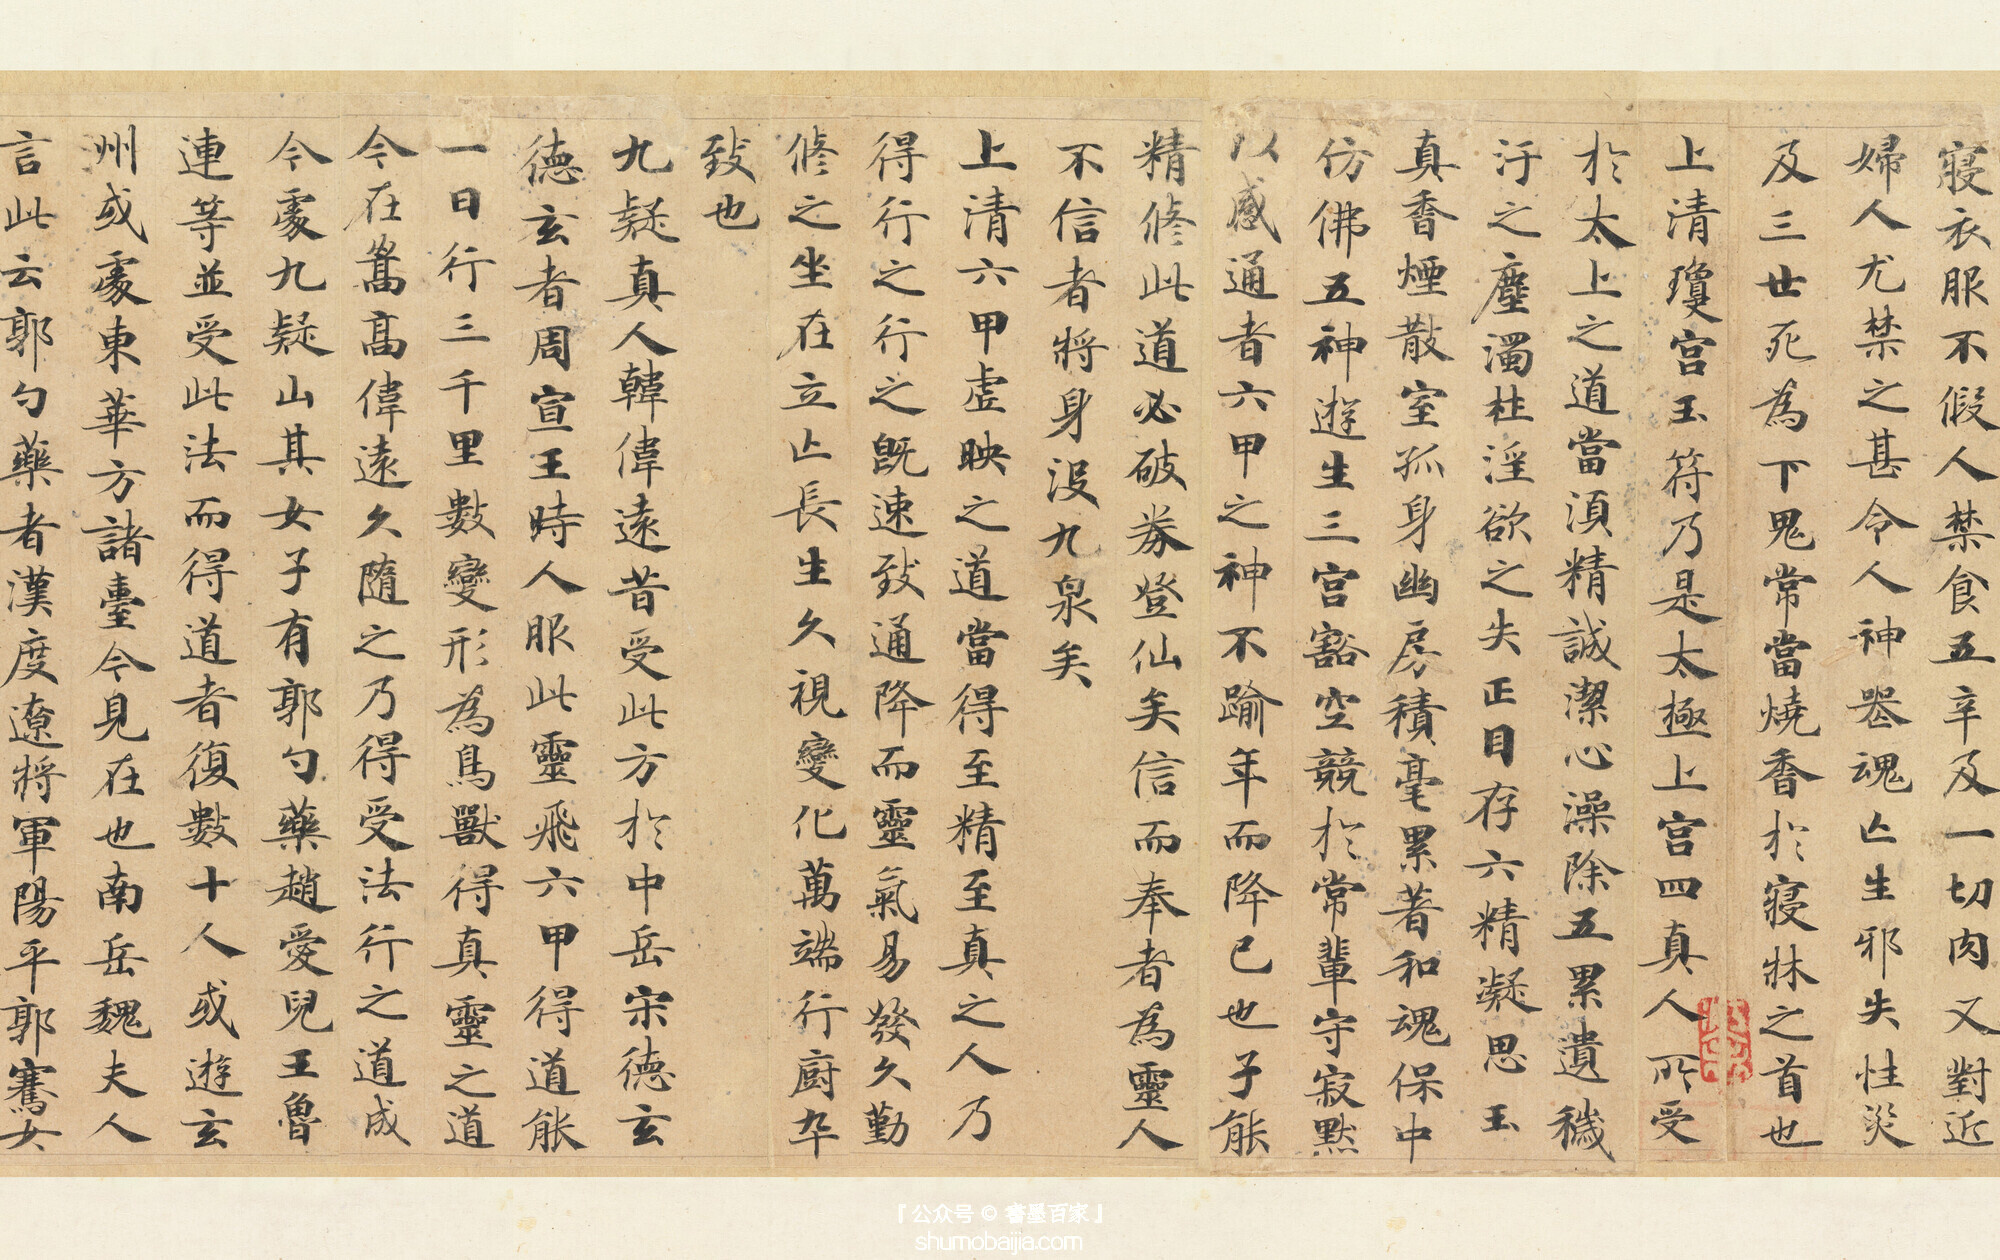 寢衣服不假人禁食五辛及一切肉又對近
婦人尤禁之甚令人神喪魂亡生邪失性災
及三世死為下鬼常當燒香於寢牀之首也
上清瓊宮玉符乃是太極上宮四真人所受
於太上之道當須精誠潔心澡除五累遺穢
汙之塵濁杜淫欲之失正目存六精凝思玉
真香煙散室孤身幽房積毫累著和魂保中
仿佛五神遊生三宮豁空競於常輩守寂默
以感通者六甲之神不踰年而降已也子能
精修此道必破券登仙矣信而奉者為靈人
不信者將身沒九泉矣
上清六甲虛映之道當得至精至真之人乃
得行之行之既速致通降而靈氣易發久勤
修之坐在立亡長生久視變化萬端行廚卒
致也
九疑真人韓偉遠昔受此方於中岳宋德玄
德玄者周宣王時人服此靈飛六甲得道能
一日行三千里數變形為鳥獸得真靈之道
今在嵩高偉遠久隨之乃得受法行之道成
今處九疑山其女子有郭勺藥趙愛兒王魯
連等並受此法而得道者復數十人或遊玄
州或處東華方諸臺今見在也南岳魏夫人
言此云郭勺藥者漢度遼將軍陽平郭騫女
『公众号 © 書墨百家』
shumobaijia.com